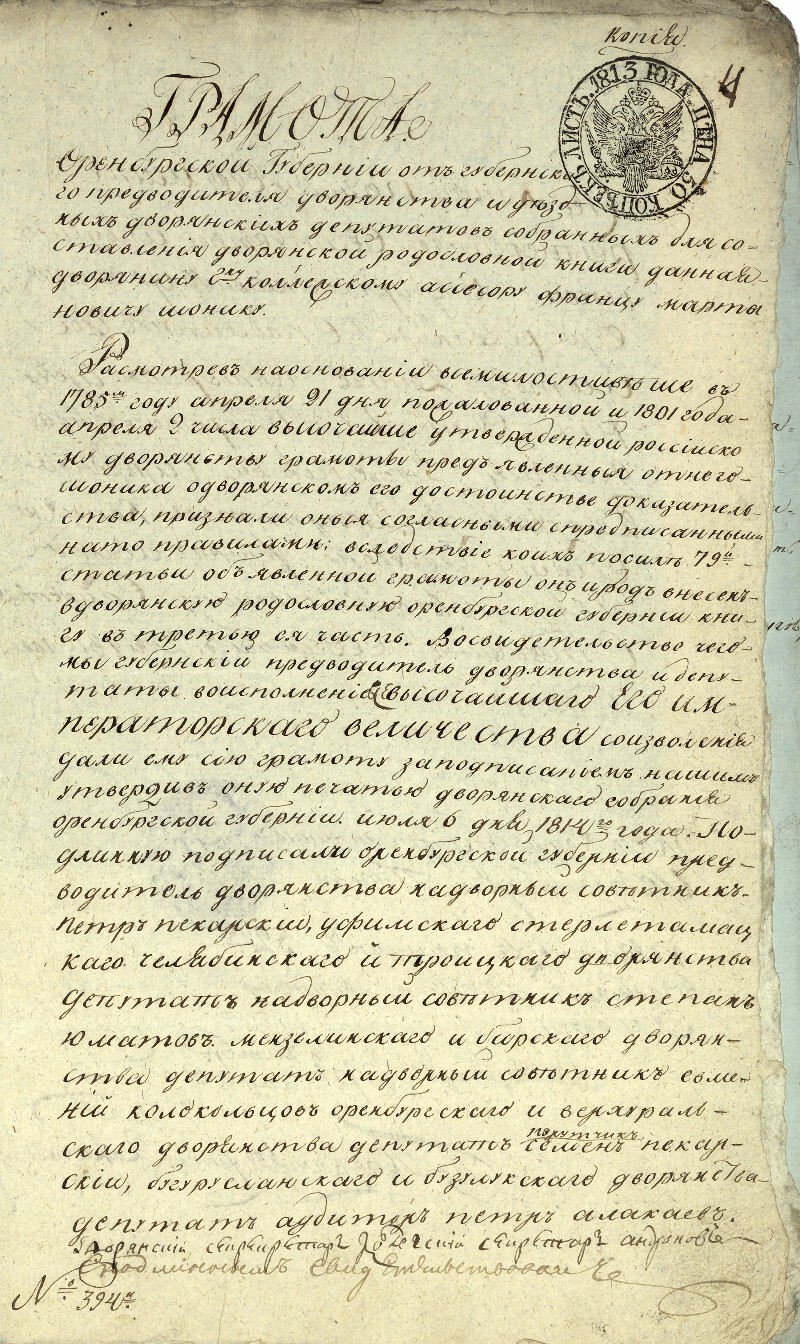 копія.
4
ЛИСТЪ. 1813 ГОДА. ЦѢНА 50 КОПѢЕКЪ
ГРАМОТА.
Оренбургской Губерніи отъ губернска
го предводителя дворянства и уѣзд
ныхъ дворянскихъ депутатовъ собранныхъ для со-
ставленія дворянской родословной книги данная
дворянину коллежскому асессору францу марты
новичу шонику.
Расмотревъ наоснованіи всемилостивѣйше въ
1785мъ году апреля 21 дня пожалованной и 1801 года
апреля 2 числа высочайше утвержденной россійско
му дворянству грамоты предъявленныя отнего
шоника одворянскомъ его достоинстве доказатель-
ства, признали оныя согласными спредписанными
нато правилами; вследствіе коихъ посилѣ 79й
статьи объявленной грамоты онъ иродъ внесенъ
вдворянскую родословную оренбургской губерніи кни-
гу въ третью ея часть. Восвидетельство чего
мы губернскій предводитель дворянства и депу-
таты воисполненіе высочайшаго ЕГО им-
ператорскаго величества соизволенія
дали ему сію грамоту заподписаніемъ нашимъ
утвердивъ оную печатью дворянскаго собранія
оренбургской губерніи. июля 6 дня 1814го года. По-
длинную подписали оренбургской губерніи пред-
водитель дворянства надворный совѣтникъ
петръ пекарскій, уфимскаго стерлетамац
каго челябинскаго и троицкаго дворянства
депутатъ надворный совѣтникъ степанъ
юматовъ. мензелинскаго и бирскаго дворян-
ства депутатъ надворный совѣтникъ евме-
ній колокольцовъ оренбургскаго и верхураль-
скаго дворянства депутатъ порутчикъ семенъ пекар-
скій, бугурусланскаго и бузулукскаго дворянства
депутатъ аудиторъ петръ алакаевъ.
Дворянскій секретарь секретарь андроновъ
Сподлиннымъ свидетельствовал
№ 394й